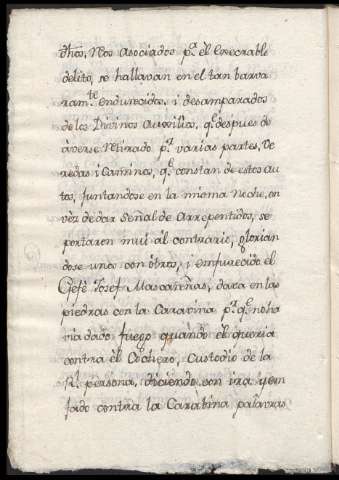 dhos, Reos Asociados pª. el Execrable
delito, se hallavan en el tan barva
ramte. endurecidos, i desamparados
de los Divinos Auxilios, qe. despues de
averse retirado pr. varias partes, Ve
redas i Caminos, qe. constan de estos Au
tos, Juntandose en la misma Noche, en
vèz de dar señal de arrepentidos, se
portaron mui al contrario, glorian
dose unos con òtros, i enfurecido el
Gefe Josef Mascareñas, dava en las
piedras con la Caravina pr. qe. no ha
via dado fuego quando el queria
contra el Cochero, Custodio de la
Rl. persona, diciendo con ira yen
fado contra la Carabina palavras